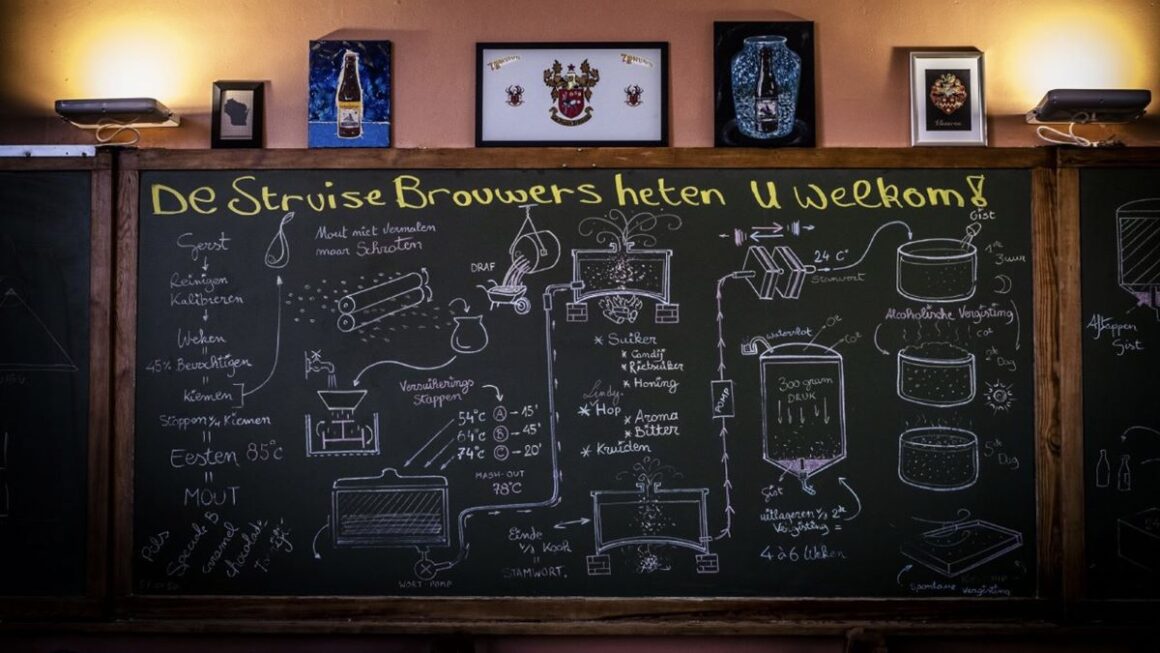 De Struise Brouwers heten U welkom!
Gerst
Reinigen
Kalibreren
Weken
45% Bevochtigen
Kiemen
Stoppen v/h Kiemen
Eesten 85°C
MOUT
Pils
Special B
Caramel
chocolade
Mout niet vermalen
maar Schroten
DRAF
Versuikerings
Stappen
54°C A → 15'
64°C B → 45'
74°C C → 20'
MASH-OUT
78°C
WORT-POMP
* Suiker
* Candij
* Rietsuiker
* Honing
* Hop
* Aroma
* Bitter
* Kruiden
Einde
v/h Kook
STAMWORT.
POMP
24 C°
Stamwort
Waterslot
CO²
300 gram
DRUK
Gist
uitlageren v/s 2de
Vergisting =
4 à 6 Weken
Gist
1ste 3uur
Alcoholische Vergisting
CO²
2de Dag
5de Dag
Spontane Vergisting
Aftappen
Gist